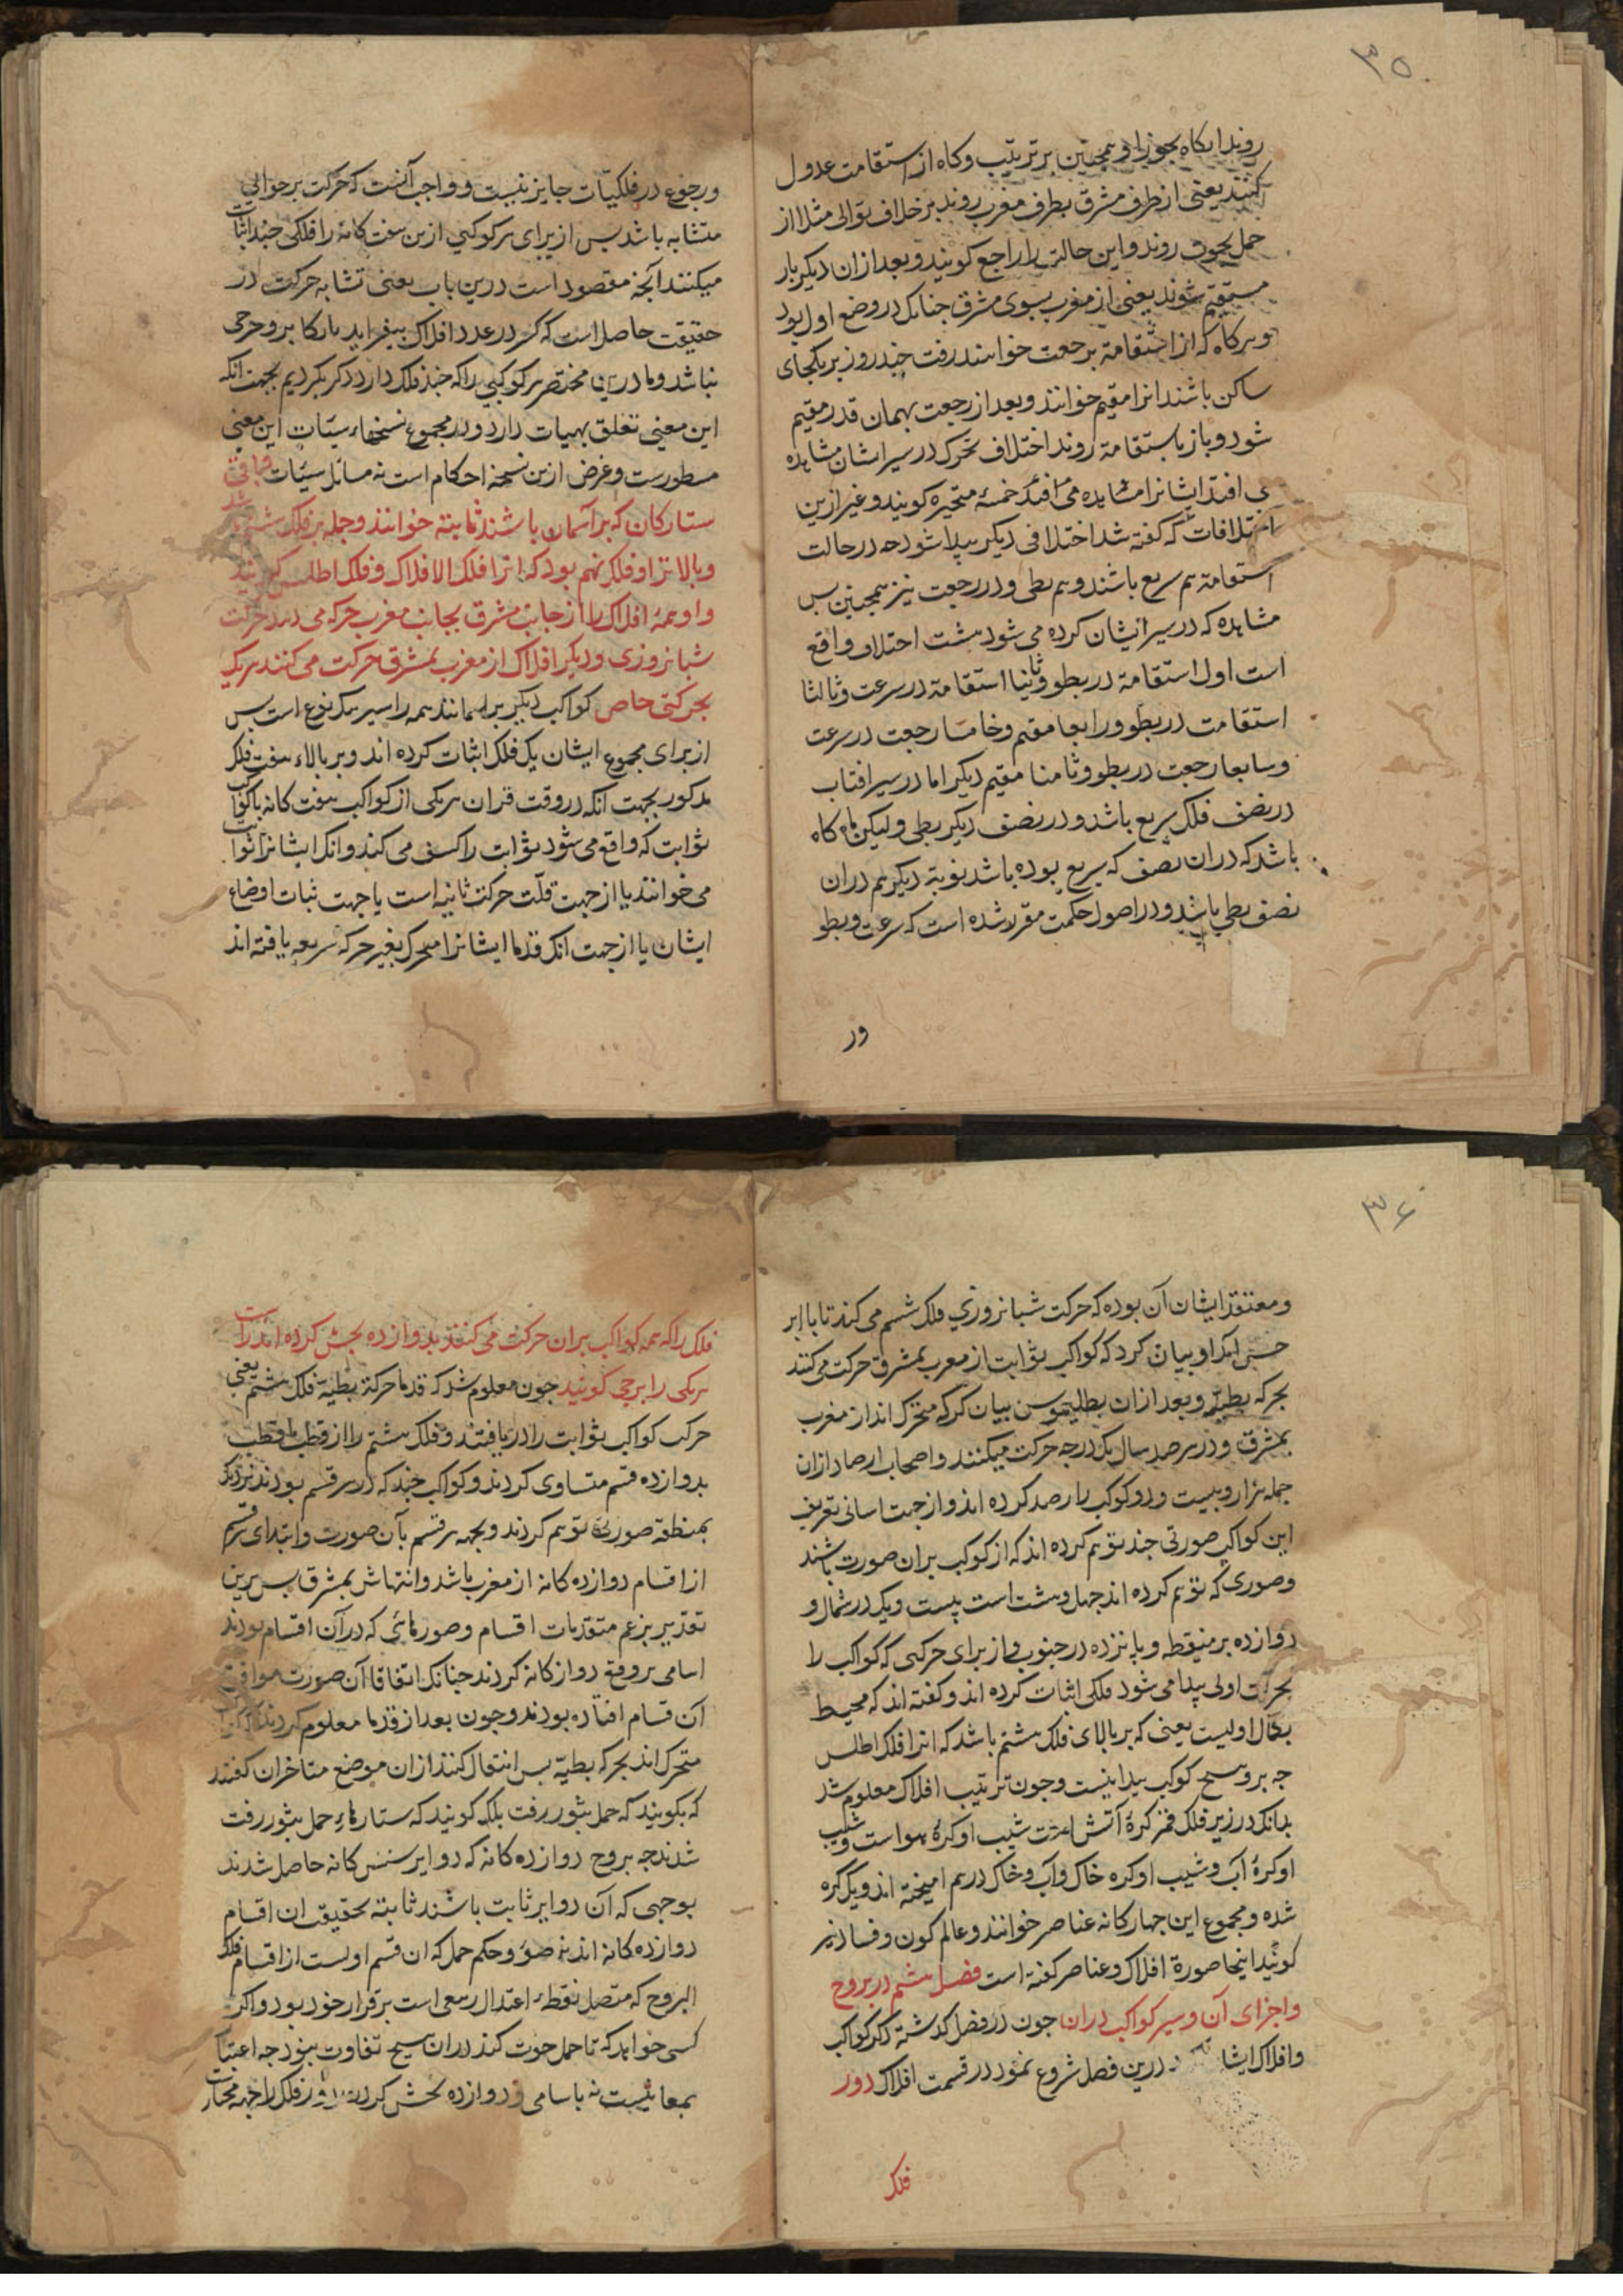 ۳۵
روند انکاه بجوزا و همچنین بر ترتیب و کاه از استقامت عدول
کنند یعنی از طرف مشرق بطرف مغرب روند بر خلاف توالی مثلا از
حمل بحوت روند و این حالت را راجع کویند و بعد از ان دیکر بار
مستقیم شوند یعنی از مغرب بسوی مشرق چنانک در وضع اول بود
و هرکاه که از استقامة برجعت خواهند رفت چند روز بر یکجای
ساکن باشند انرا مقیم خوانند و بعد از رجعت بهمان قدر مقیم
شود و باز باستقامة روند اختلاف تحرک در سیر ایشان مشاهده
می افتد ایشانرا مشاهده می افتد خمسهٔ متحیره کویند و غیر ازین
اختلافات که کفته شد اختلافی دیکر پیدا شود چه در حالت
استقامة هم سریع باشند و هم بطی و در رجعت نیز همچنین پس
مشاهده که در سیر ایشان کرده می شود هشت اختلاف واقع
است اول استقامة در بطو و ثانیا استقامة در سرعت و ثالثا
استقامت در بطو و رابعا مقیم و خامسا رجعت در سرعت
و سابعا رجعت در بطو و ثامنا مقیم دیکر اما در سیر افتاب
در نصف فلک سریع باشد و در نصف دیکر بطی و لیکن ماه کاه
باشد که در ان نصف که سریع بوده باشد نوبة دیکر هم در ان
نصف بطی باشد و در اصول حکمت مقرر شده است که سرعت و بطو
ور
و رجوع در فلکیات جایز نیست و واجب آنست که حرکت بر حوالی
متشابه باشد پس از برای هر کوکبی ازین هفت کانه را فلکی چند اثبات
میکنند آنچه مقصود است درین باب یعنی تشابه حرکت در
حقیقت حاصل است که کر در عدد افلاک بیفزاید یا بکاهد و حرجی
نباشد و ما درین مختصر هر کوکبی را که چند فلک دارد ذکر نکردیم بجهت انکه
این معنی تعلق بهیات دارد و در مجموع نسخهاء هیئات این معنی
مسطورست و غرض ازین نسخه احکام است نه مسائل هیئات و باقی
ستارکان که بر آسمان باشند ثابته خوانند و جمله بر فلک هشتم باشند
و بالاتر از او فلک نهم بود که انرا فلک الافلاک و فلک اطلس کویند
و او همهٔ افلاک را از جانب مشرق بجانب مغرب حرکه می دهد حرکت
شبانروزی و دیکر افلاک از مغرب بمشرق حرکت می کنند هریک
بحرکتی خاص کواکب دیکر بر اسمانند همه را سیر یک نوع است پس
از برای مجموع ایشان یک فلک اثبات کرده اند و بر بالاء هفت فلک
مذکور بجهت انکه در وقت قران هریکی از کواکب هفت کانه با کواکب
ثوابت که واقع می شود ثوابت را کسف می کند و انک ایشانرا ثوابت
می خوانند یا از جهت قلّت حرکت ثانیه است یا جهت ثبات اوضاع
ایشان یا از جهت انک قدما ایشانرا متحرک بغیر حرکه سریعه یافته اند
۳۶
و معتقد ایشان آن بوده که حرکت شبانروزی فلک هشتم می کند تا با ابر
خس انکه او بیان کرد که کواکب ثوابت از مغرب بمشرق حرکت می کنند
بحرکه بطیه و بعد از ان بطلیموس بیان کرد که متحرک اند از مغرب
بمشرق و در هر صد سال یک درجه حرکت میکنند و اصحاب ارصاد ازان
جمله هزار و بیست و دو کوکب را رصد کرده اند و از جهت اسانی تعریف
این کواکب صورتی چند توهم کرده اند که از کوکب بران صورت باشند
و صوری که توهم کرده اند چهل و هشت است بیست و یک در شمال و
دوازده بر منیقطه و پانزده در جنوب و از برای حرکتی که کواکب را
بحرکت اولی پیدا می شود فلکی اثبات کرده اند و کفته اند که محیط
بکمال اولیست یعنی که بر بالای فلک هشتم باشد که انرا فلک اطلس
چه بر و هیچ کوکب پیدا نیست و چون ترتیب افلاک معلوم شد
بدانک در زیر فلک قمر کرهٔ آتش است شیب او کرهٔ هواست و شیب
او کرهٔ آب و شیب او کره خاک و آب و خاک در هم امیخته اند و یک کره
شده و مجموع این چهارکانه عناصر خوانند و عالم کون و فساد نیز
کویند اینجا صورة افلاک و عناصر کفته است فصل هشتم در بروج
و اجزای آن و سیر کواکب دران چون در فصل کذشته ذکر کواکب
و افلاک ایشا درین فصل شروع نمود در قسمت افلاک دور
فلک
فلک را که همه کواکب بران حرکت می کنند بدوازده بخش کرده اند راست
هریکی را برجی کویند چون معلوم شد که قدما حرکة بطیة فلک هشتم یعنی
حرکت کواکب ثوابت را دریافتند و فلک هشتم را از قطب تا قطب
بدوازده قسم متساوی کردند و کواکب چند که در هر قسم بودند نزدیک
بمنطقه صورتی توهم کردند و بجهه هر قسم بآن صورت و ابتدای هر قسم
از اقسام دوازده کانه از مغرب باشد و انتهاش بمشرق پس برین
تقدیر بزعم متقدمات اقسام و صورهائی که در آن اقسام بودند
اسامی بر وفق دوازکانه کردند چنانک اتفاقا آن صورت موافق
آن قسام افتاده بودند و چون بعد از قدما معلوم کردند که کواکب
متحرک اند بحرکه بطیّه پس انتقال کنند ازان موضع متاخران کفتند
که بکویند که حمل بثور رفت بلک کویند که ستارهاءِ حمل بثور رفت
شدند چه بروج دوازده کانه که دوایر ستس کانه حاصل شدند
بوجهی که آن دوایر ثابت باشند ثابته تحقیقت ان اقسام
دوازده کانه اند نه صور و حکم حمل که ان قسم اولست از اقسام فلک
البروج که متصل نقطهٔ اعتدال ربیعی است برقرار خود بود و اکر
کسی خواهد که تا حمل حوت کند دران هیچ تفاوت نبود چه اعتبار
بمعانیست نه باسامی و دوازده بخش کردن فلک را جهة مجار